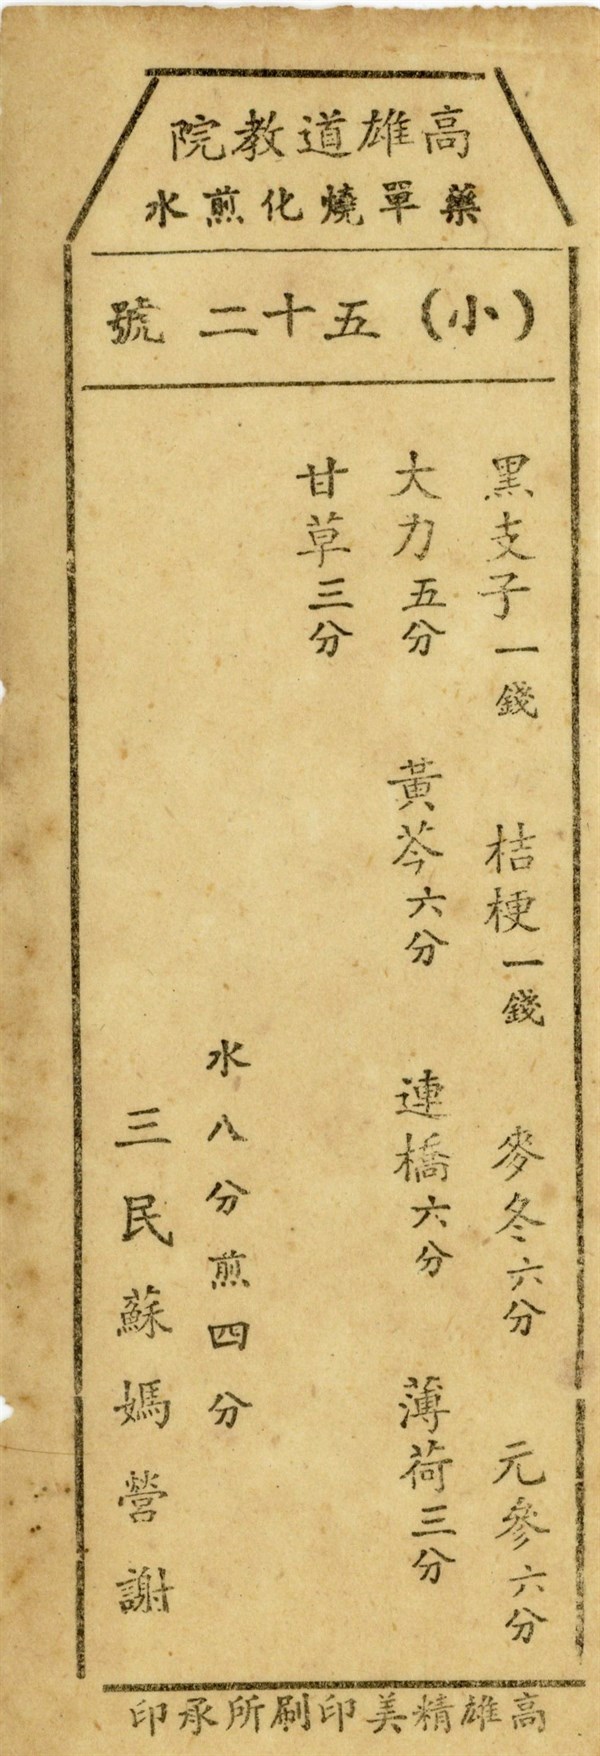 高雄道教院
藥單燒化煎水
(小)五十二號
黑支子一錢 桔梗一錢 麥冬六分 元參六分
大力五分 黃芩六分 連橋六分 薄荷三分
甘草三分
水八分煎四分
三民蘇媽營謝
高雄精美印刷所承印